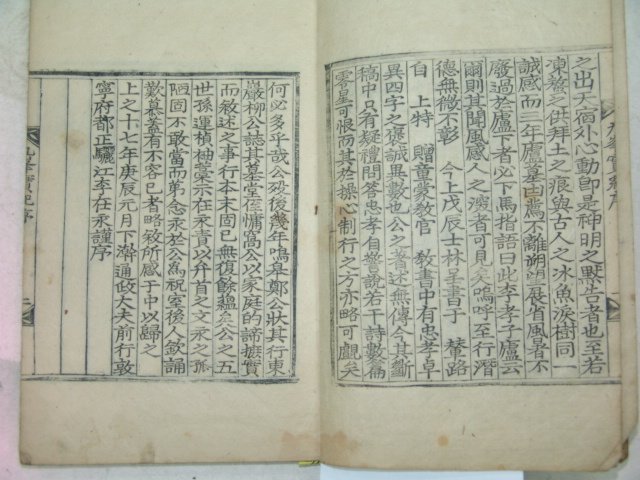 之出天宥外心動卽是神明之默告者也至若
凍盤之供拜土之痕與古人之冰魚淚樹同一
誠感而三年廬墓由焉不離朔朢展省風暑不
廢過於廬下者必下馬指語曰此李孝子廬云
爾則其聞風感人之深者可見矣嗚呼至行潛
德無微不彰 今上戊辰士林呈書于 輦路
自 上特 贈童蒙敎官 敎書中有忠孝卓
異四字之褒誠異數也公之著述無傳今其斷
稿中只有疑禮問答忠孝自警說若干詩數篇
零星可恨而其於操心制行之方亦略可覰矣
何必多乎哉公殁後幾年鳴皐鄭公狀其行東
巖柳公誌其墓堂侄慵窩公以家庭的諦摭實
而敘述之事行本末固已無復餘蘊矣公之五
世孫運楨袖彙示在永責以弁首之文永之孱
陋固不敢當而第念永於公爲祝室後人欽誦
歎慕寔有不容已者略敘所感于中以歸之
上之十七年庚辰元月下澣通政大夫前行敦
寧府都正驪江李在永謹序